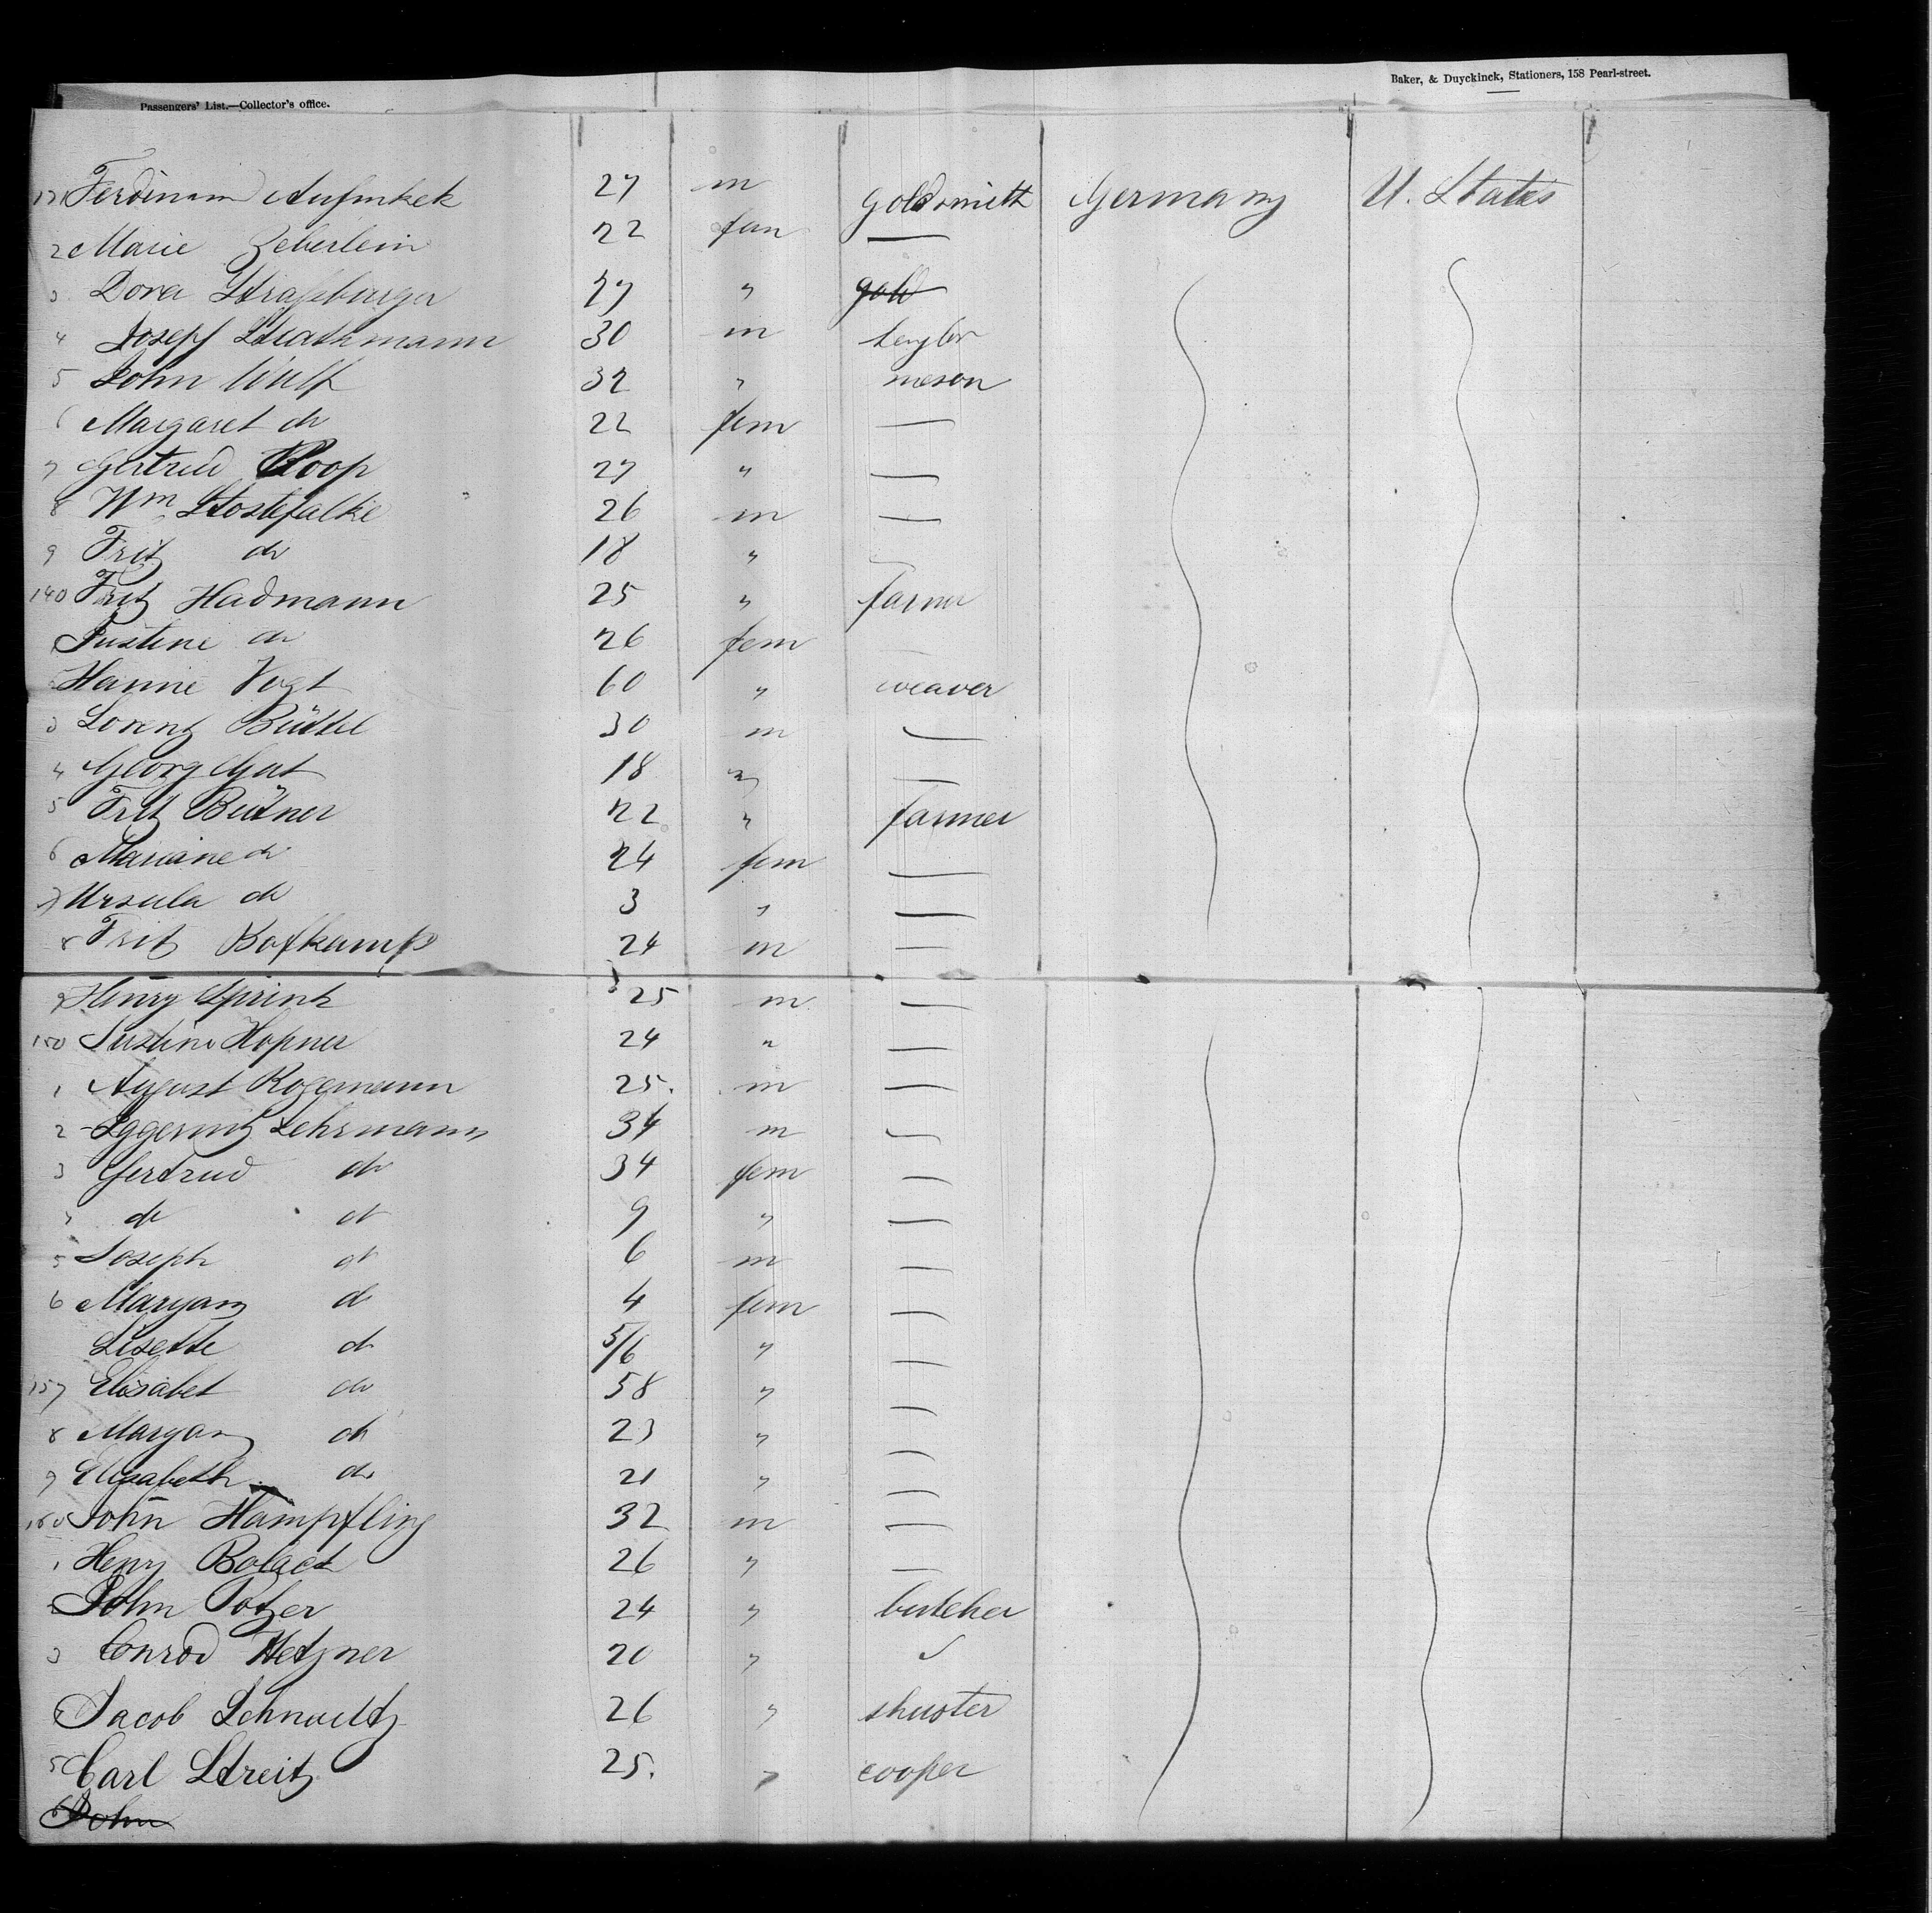 Baker, & Duyckinck, Stationers, 158 Pearl-street.
Passengers' List.—Collector's office.
131 Ferdinand 27 m goldsmith Germany U. States
2 Marie Zeberlein 22 fem —
3 Dora Straßburger 27 " gold
4 Joseph Strathmann 30 m taylor
5 John Wulf 32 " meson
6 Margaret do 22 fem —
7 Gertrud Koop 27 " —
8 Wm Stostefalke 26 m —
9 Fritz do 18 " —
140 Fritz Hadmann 25 " farmer
Justine do 26 fem
Hanne Vogt 60 " weaver
3 Lorenz Büttel 30 m —
4 Georg Gut 18 " —
5 Fritz Bütner 22 " farmer
6 Mariane do 24 fem —
7 Ursula do 3 " —
8 Fritz Bofkamp 24 m —
9 Henry Sprink 25 m —
150 Justine Hopner 24 " —
1 August Rogemann 25. m —
2 Lehrmann 34 m —
3 Gertrud do 34 fem —
4 do do 9 " —
5 Joseph do 6 m —
6 Maryam do 4 fem —
Lisette do 5/6 " —
157 Elisabet do 58 " —
8 Maryam do 23 " —
9 Elisabeth do 21 " —
160 John Hampfling 32 m —
1 Henry 26 " —
2 John Potzer 24 " butcher
3 Conrod Hetzner 20 "
Jacob 26 " shuster
5 Carl Streitz 25. " cooper
6 John